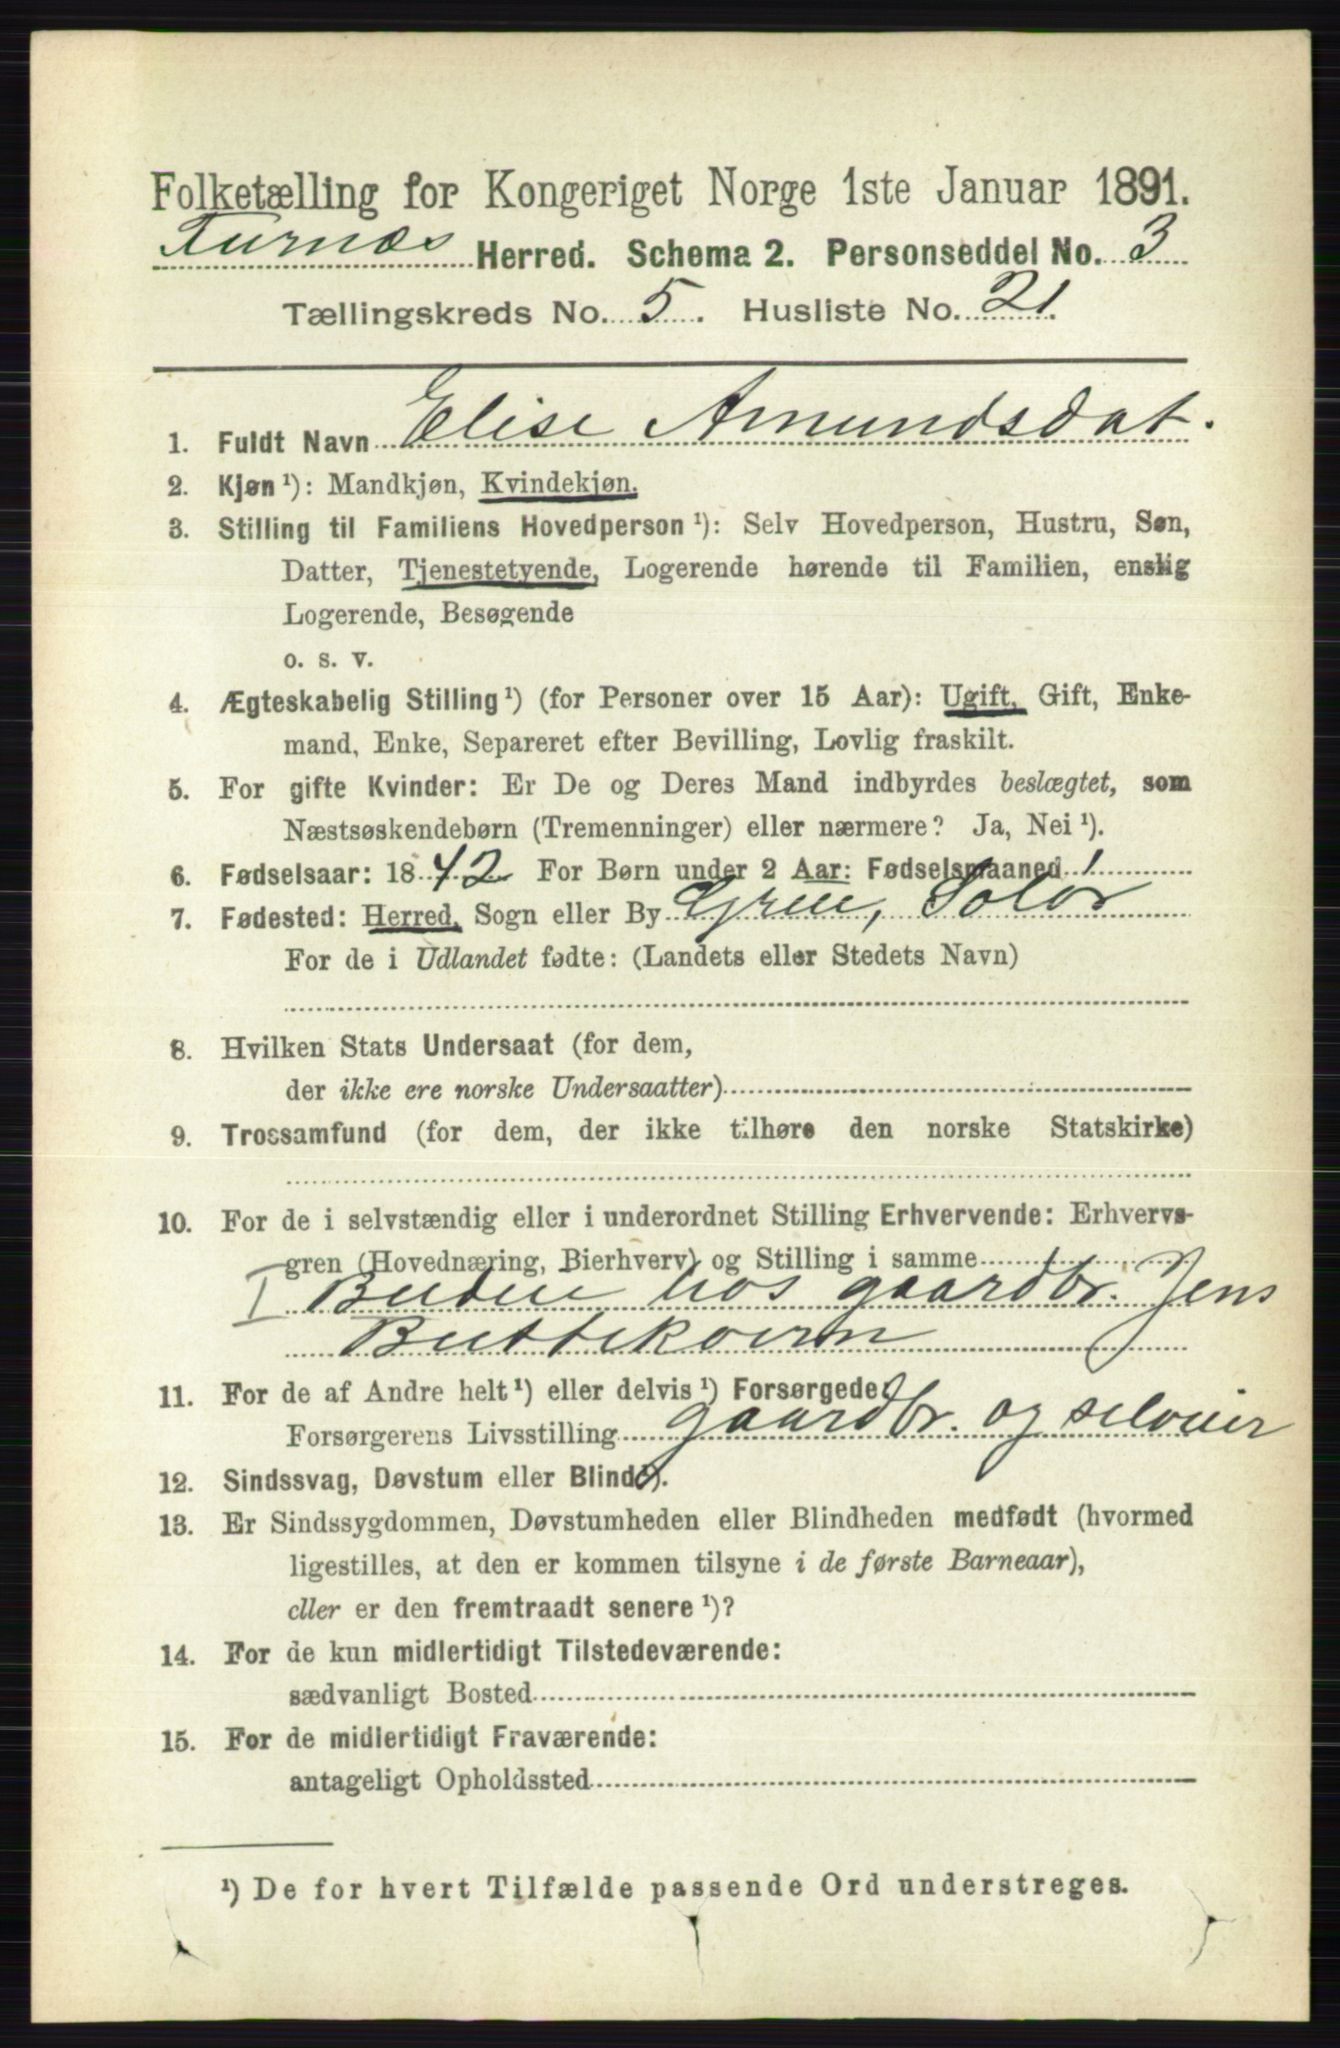 Folketælling for Kongeriget Norge 1ste Januar 1891.
Furnæs Herred. Schema 2. Personseddel No. 3
Tællingskreds No. 5. Husliste No. 21.
1. Fuldt Navn Elise Amundsdat.
2. Kjøn ¹): Mandkjøn, Kvindekjøn.
3. Stilling til Familiens Hovedperson ¹): Selv Hovedperson, Hustru, Søn,
Datter, Tjenestetyende, Logerende hørende til Familien, enslig
Logerende, Besøgende
o. s. v.
4. Ægteskabelig Stilling ¹) (for Personer over 15 Aar): Ugift, Gift, Enke-
mand, Enke, Separeret efter Bevilling, Lovlig fraskilt.
5. For gifte Kvinder: Er De og Deres Mand indbyrdes beslægtet, som
Næstsøskendebørn (Tremenninger) eller nærmere? Ja, Nei ¹).
6. Fødselsaar: 1842 For Børn under 2 Aar: Fødselsmaaned
7. Fødested: Herred, Sogn eller By Grue, Solør
For de i Udlandet fødte: (Landets eller Stedets Navn)
8. Hvilken Stats Undersaat (for dem,
der ikke ere norske Undersaatter)
9. Trossamfund (for dem, der ikke tilhøre den norske Statskirke)
10. For de i selvstændig eller i underordnet Stilling Erhvervende: Erhvervs-
gren (Hovednæring, Bierhverv) og Stilling i samme
I Budeie hos gaardbr. Jens
Buttekvern
11. For de af Andre helt ¹) eller delvis ¹) Forsørgede:
Forsørgerens Livsstilling gaardbr. og selveier
12. Sindssvag, Døvstum eller Blind ¹).
13. Er Sindssygdommen, Døvstumheden eller Blindheden medfødt (hvormed
ligestilles, at den er kommen tilsyne i de første Barneaar),
eller er den fremtraadt senere ¹)?
14. For de kun midlertidigt Tilstedeværende:
sædvanligt Bosted
15. For de midlertidigt Fraværende:
antageligt Opholdssted
¹) De for hvert Tilfælde passende Ord understreges.